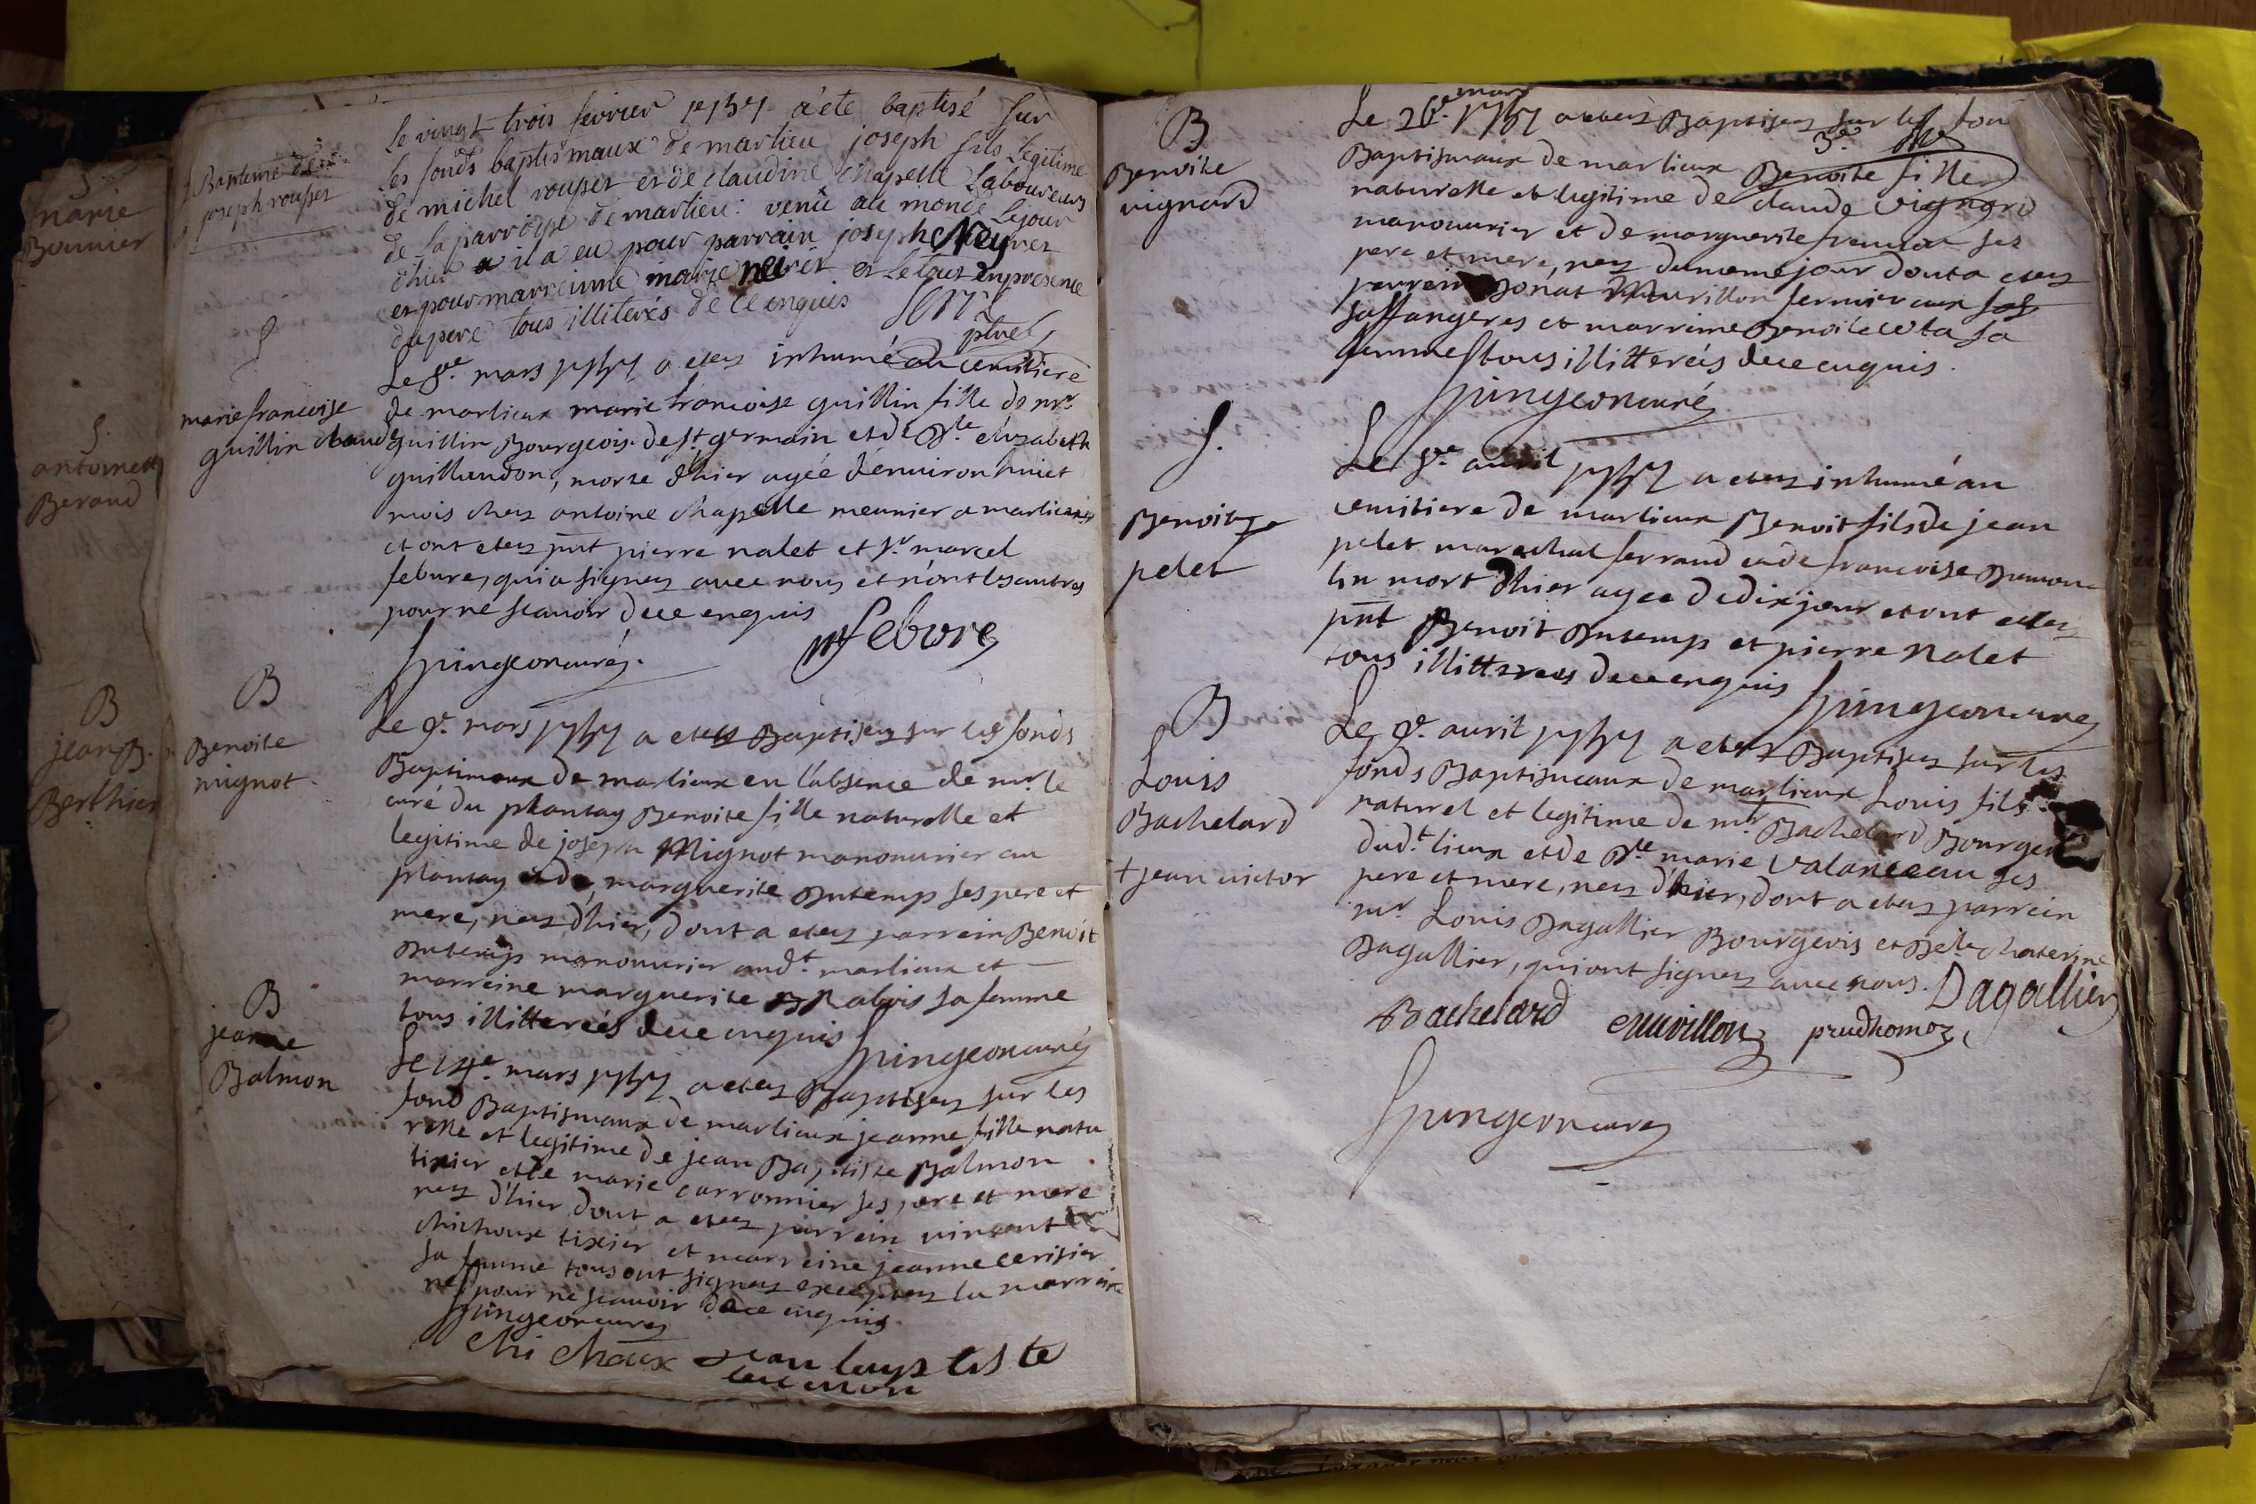 marie
Bonnier
S.
antoinette
Beraud
B
jean B.
Berthier
Bapteme de
joseph rousset
le vingt trois fevrier 1757 a été baptisé sur
les fonds baptismaux de marlieu joseph fils Legitime
de michel rousset et de claudine chapelle Laboureurs
de la parroisse de marlieu: venû au monde Lejour
d'hier il a eu pour parrain joseph Neyret
et pour marrienne marie neiret et Le tout en presence
du pere tous illiterés de ce enquis
S
marie francoise
guillin
Le 8e. mars 1757 a etez inhumé au cemitiere
de marlieux marie francoise guillin fille de mr.
claude guillin Bourgeois de st germain et de Dle elizabeth
guillaudon, morte d'hier agée d'environ huict
mois chez antoine chapelle meunier a marlieux
et ont etez pnt pierre nalet et sr marcel
febure, qui a signez avec nous et non les autres
pour ne scavoir de ce enquis
Spingeon curé.
mfebvre
B
Benoite
mignot.
Le 9e. mars 1757 a etez Baptisez sur les fonds
Baptimaux de marlieux en l'absence de mr. le
curé du plantay Benoite fille naturelle et
legitime de joseph Mignot manouvrier au
plantay et de marguerite Dutemp ses pere et
mere, nez d'hier, dont a etez parrein Benoit
Dutemp manouvrier audt. marlieux et
marreine marguerite Nalois sa femme
tous illitterés de ce enquis Spingeon curé
B
jeanne
Balmon
Le 14e. mars 1757 a etez Baptisez sur les
fond Baptismaux de marlieux jeanne fille natu
relle et legitime de jean Baptiste Balmon
tixier et de marie carronnier ses pere et mere
nez d'hier dont a etez parrein vincent
chichoux tixier et marreine jeanne cerisier
sa femme tous ont signez exceptez la marrei
ne pour ne scavoir de ce enquis.
Spingeon curé
chi choux jean baptiste
balmon
B
Benoite
vignard
Le 26e. mars 1757 a etez Baptisez sur les fon
Baptismaux de marlieux Benoite fille
naturelle et legitime de claude vignard
manouvrier et de marguerite ses
pere et mere, nez du meme jour dont a etez
parrein Donat Murillon fermier aux
saffangeres et marreine Benoite cota sa
femme tous illitterés de ce enquis.
Spingeon curé
S.
Benoit
pelet
Le 8e. avril 1757 a etez inhumé au
cemitiere de marlieux Benoit fils de jean
pelet marechal ferrand et de francoise Dumou
lin mort d'hier agee de dix jour et ont etez
pnt Benoit Dutemp et pierre Nalet
tous illitterez de ce enquis Spingeon curé
B
Louis
Bachelard
+ jean victor
Le 9e. avril 1757 a etez Baptisez sur les
fonds Baptismeaux de marlieux Louis fils
naturel et legitime de mr. Bachelard Bourgeois
dudt. lieux et de Dlle marie valanceau ses
pere et mere, nez d'hier, dont a etez parrein
mr. Louis Dagallier Bourgeois et Delle chaterine
Dagallier, qui ont signez avec nous. Dagallier
Bachelard cuuvillon prudhomoz
Spingeon curé